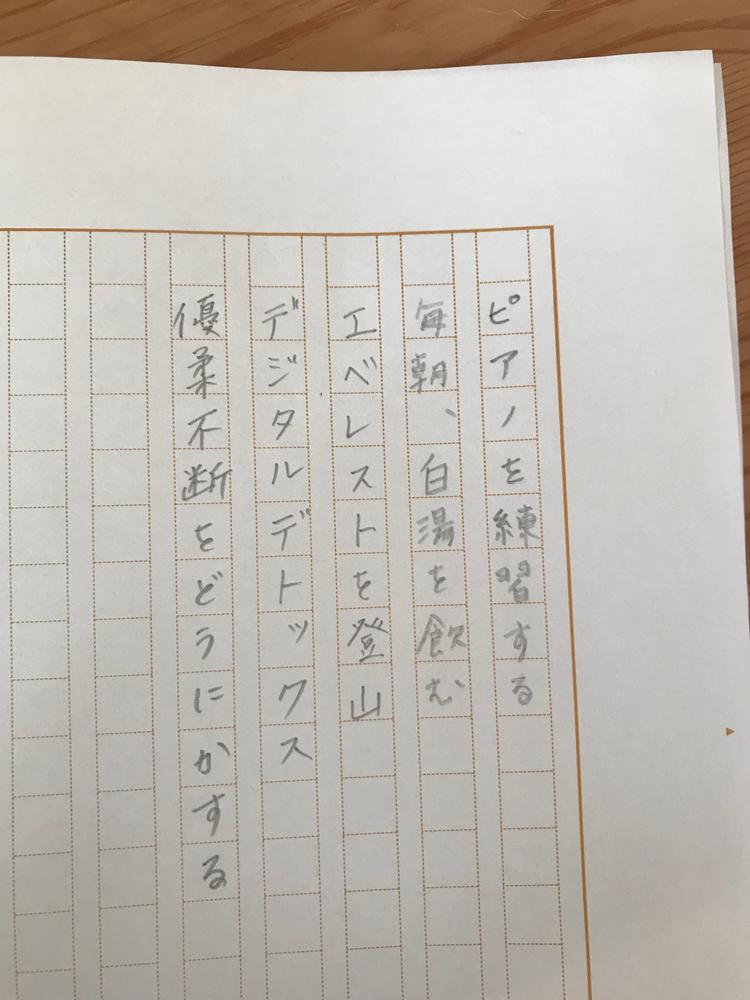 ピアノを練習する
毎朝、白湯を飲む
エベレストを登山
デジタルデトックス
優柔不断をどうにかする